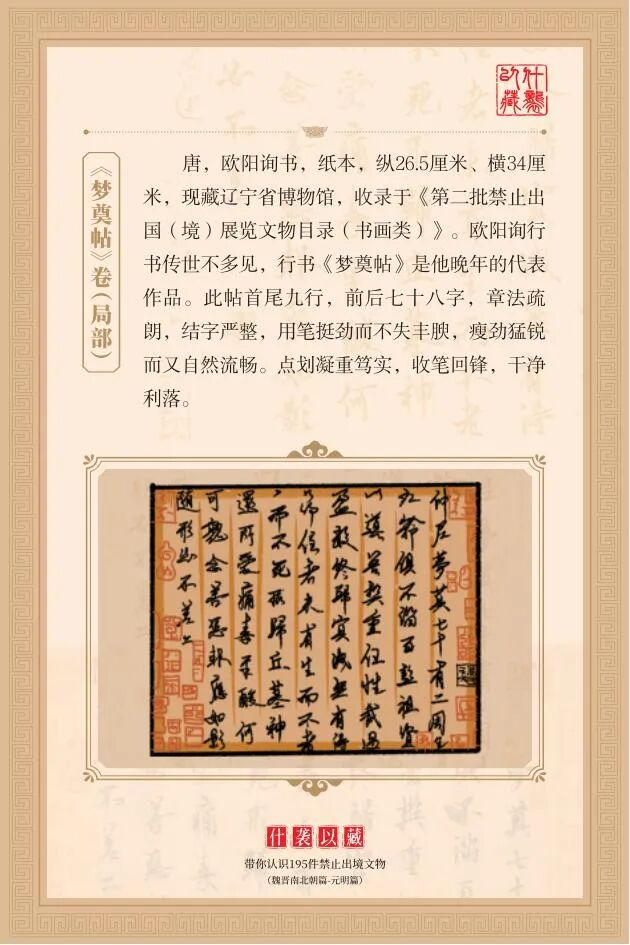 什襲以藏
《梦奠帖》卷（局部）
唐，欧阳询书，纸本，纵26.5厘米、横34厘
米，现藏辽宁省博物馆，收录于《第二批禁止出
国（境）展览文物目录（书画类）》。欧阳询行
书传世不多见，行书《梦奠帖》是他晚年的代表
作品。此帖首尾九行，前后七十八字，章法疏
朗，结字严整，用笔挺劲而不失丰腴，瘦劲猛锐
而又自然流畅。点划凝重笃实，收笔回锋，干净
利落。
仲尼夢奠七十有二周王
九齡俱不滿百彭祖資
以導養樊重任性裁過
盈數終歸冥滅無有得
停住者未有生而不老
老而不死形歸丘墓神
還所受痛毒辛酸何
可熟念善惡報應如影
隨形必不差二
什袭以藏
带你认识195件禁止出境文物
（魏晋南北朝篇-元明篇）